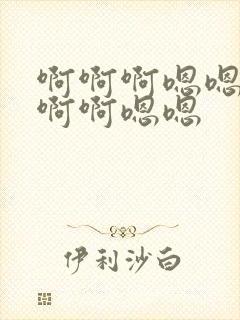 啊啊啊嗯嗯
啊啊嗯嗯
伊利沙白